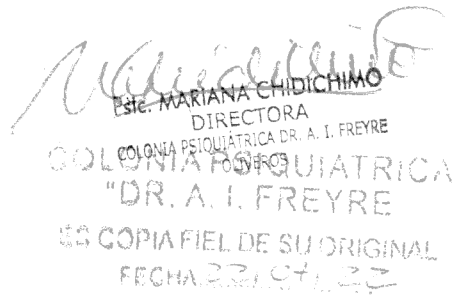 Psic. MARIANA CHIDICHIMO
DIRECTORA
COLONIA PSIQUIÁTRICA DR. A. I. FREYRE
OLIVEROS
COLONIA PSIQUIATRICA
"DR. A. I. FREYRE
ES COPIA FIEL DE SU ORIGINAL
FECHA